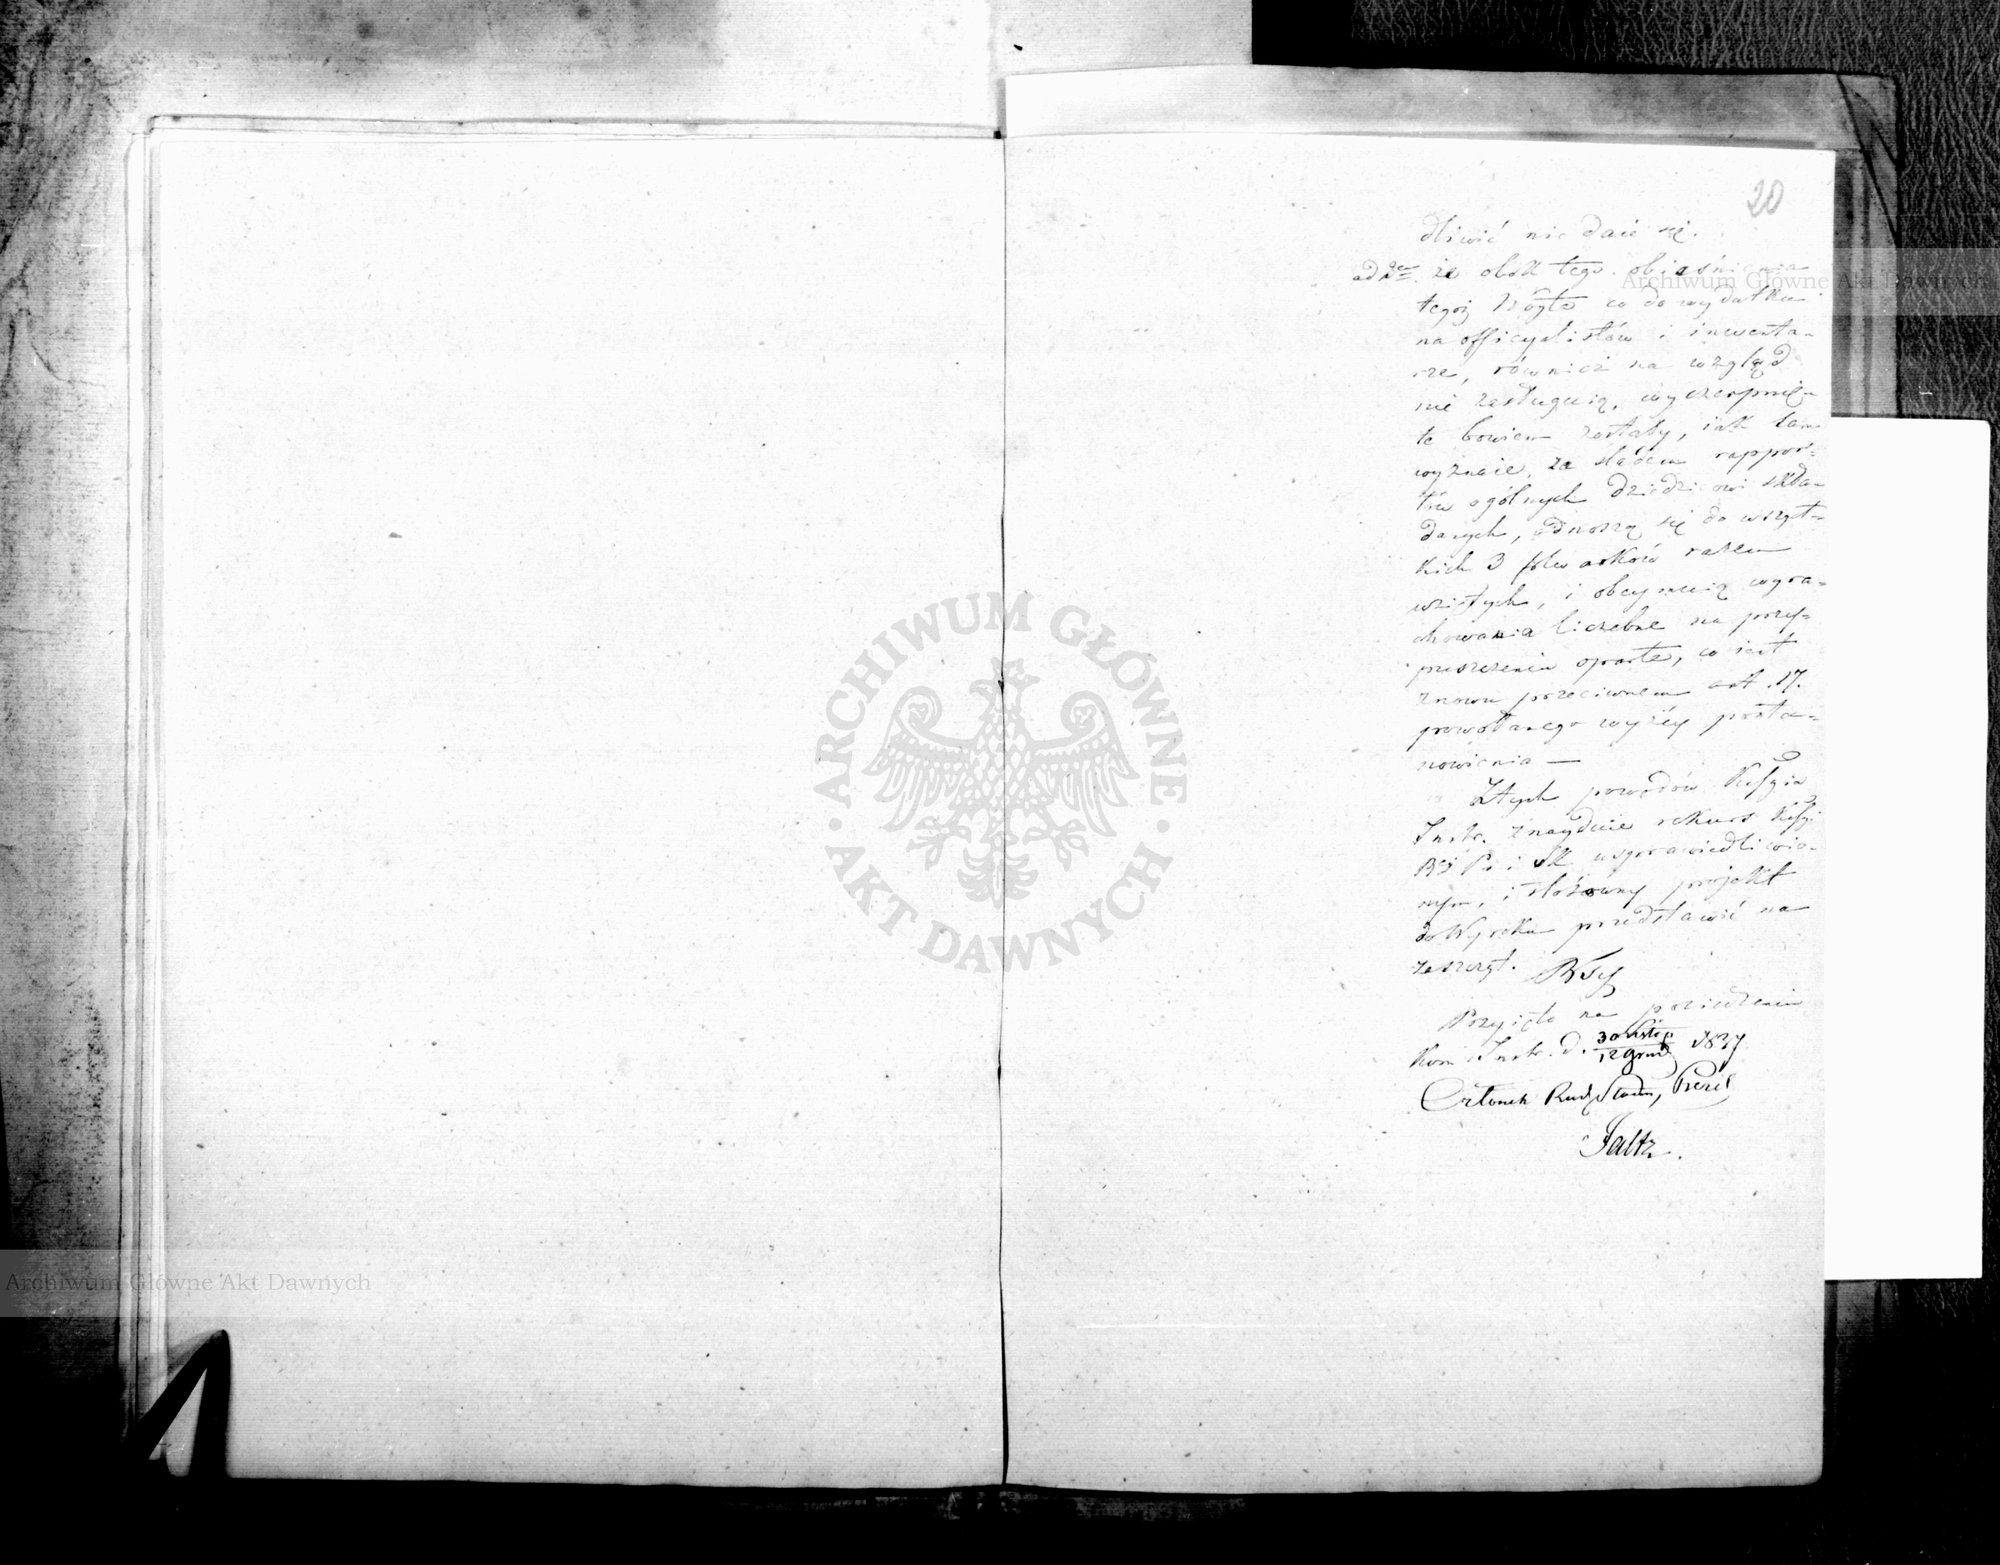 20
dliwić nie daie się.
ad 2um że obok tego obiaśnienia
tegoż Wógta co do wydatku
na officyalistów i inwenta-
rze, również na wzgląd
nie zasługuią, wyczerpnię-
te bowiem zostały, iak sam
wyznaie, za śladem rappor-
tów ogólnych dziedzicowi skła-
danych, odnoszą się do wszyst-
kich 3 folwarków razem
wziętych, i obeymuią wyra-
chowania liczebne na przy-
puszczeniu oparte, co iest
znowu przeciwnem art. 17.
powołanego wyżéy posta-
nowienia —
Z tych powodów Kssyia
Instr. znayduie rekurs Kssyi
RS P. i Sk. usprawiedliwio-
nym, i stosowny projekt
do Wyroku przedstawić na
zaszczyt.
Przyięto na posiedzeniu
Kom Instr. d. 30 Listop/12 Grud 1837
Członek Rady Stanu, Prezes
Archiwum Główne Akt Dawnych
ARCHIWUM GŁÓWNE · AKT DAWNYCH ·
Archiwum Główne Akt Dawnych